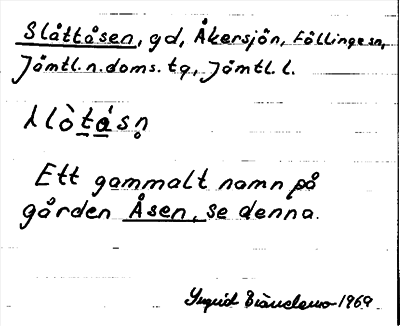 Slåttåsen, gd, Åkersjön, Föllinge sn,
Jämtl. n. doms. tg, Jämtl. l.
Ett gammalt namn på
gården Åsen, se denna.
1969